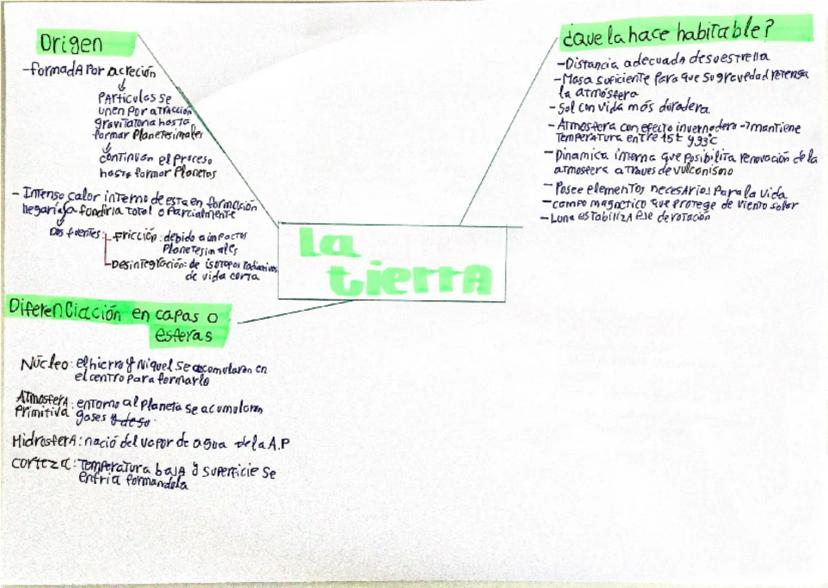 Origen
-formada por acreción
Partículas se
unen por atracción
gravitatoria hasta
formar Planetesimales
continúan el proceso
hasta formar Planetas
- Intenso calor interno de esta en formación
llegaría a fundirla total o parcialmente
Dos fuentes: -Fricción: debido a impactos
Planetesimales
-Desintegración: de isotopos radiactivos
de vida corta
¿que la hace habitable?
-Distancia adecuada de su estrella
-Masa suficiente para que su gravedad retenga
la atmósfera
-Sol con vida más duradera
-Atmosfera con efecto invernadero → mantiene
temperatura entre 15℃ y
-Dinamica interna que posibilita renovación de la
atmosfera a traves de vulcanismo
-Posee elementos necesarios para la vida
-campo magnetico que protege de viento solar
-Luna estabiliza eje de rotación
La
tierra
Diferenciación en capas o
esferas
Núcleo: el hierro y Niquel se acomularon en
el centro para formarlo
Atmosfera
Primitiva: entorno al planeta se acomularon
gases
Hidrosfera: nació del vapor de agua de la A.P
corteza: temperatura baja y superficie se
enfria formandola